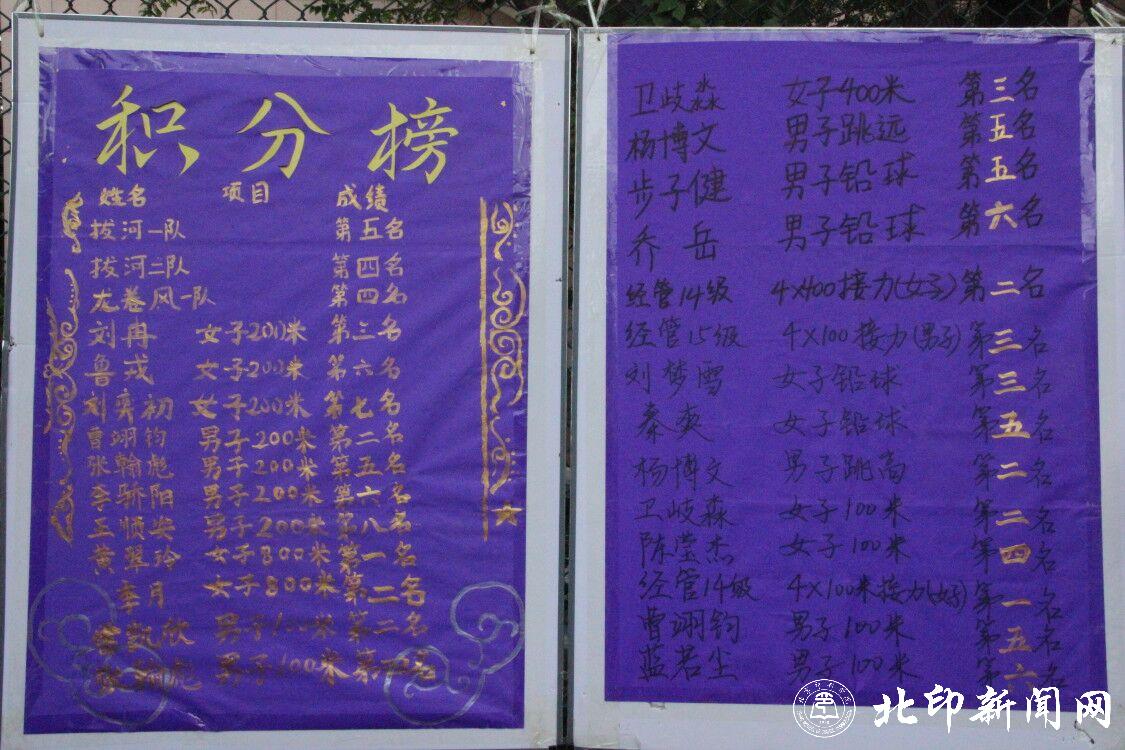 积分榜
姓名 项目 成绩
拔河一队 第五名
拔河二队 第四名
龙卷风一队 第四名
刘冉 女子200米 第三名
鲁戎 女子200米 第六名
刘奕初 女子200米 第七名
曹翊钧 男子200米 第二名
张翰彪 男子200米 第五名
李骄阳 男子200米 第六名
王顺安 男子200米 第八名
黄翠玲 女子800米 第一名
李月 女子800米 第二名
凯欣 男子100米 第二名
张翰彪 男子100米 第四名
卫歧淼 女子400米 第三名
杨博文 男子跳远 第五名
步子健 男子铅球 第五名
乔岳 男子铅球 第六名
经管14级 4×400接力(女子) 第二名
经管15级 4×100接力(男子) 第三名
刘梦雪 女子铅球 第三名
秦爽 女子铅球 第五名
杨博文 男子跳高 第二名
卫歧森 女子100米 第二名
陈莹杰 女子100米 第四名
经管14级 4×100米接力(女子) 第一名
曹翊钧 男子100米 第五名
蓝若尘 男子100米 第六名
北印新闻网